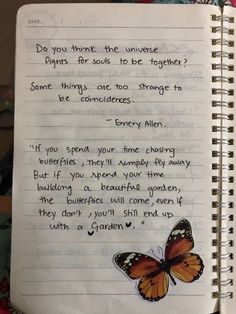 DATE
Do you think the universe
fights for souls to be together?
Some things are too strange to
be coincidences.
- Emery Allen.
"If you spend your time chasing
butterflies, they'll simply fly away
But if you spend your time
building a beautiful garden,
the butterflies will come, even if
they don't, you'll still end up
with a Garden♥. "